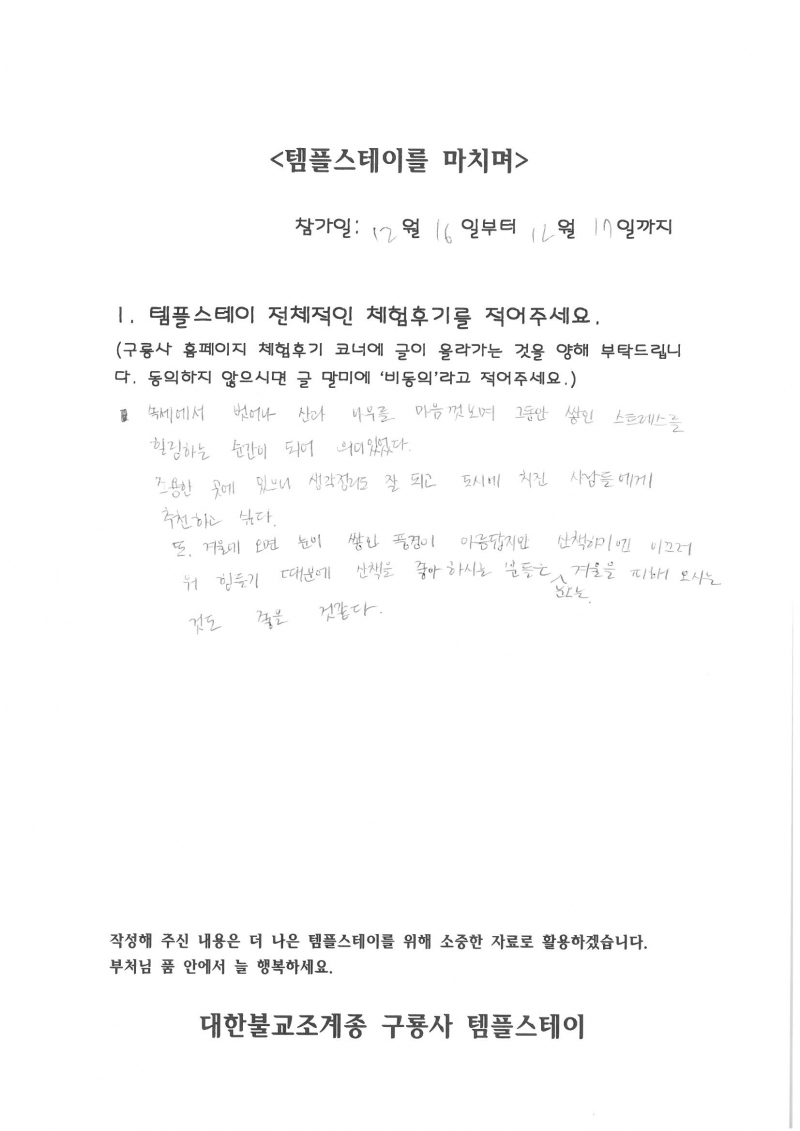 <템플스테이를 마치며>
참가일: 12월 16일부터 12월 17일까지
1. 템플스테이 전체적인 체험후기를 적어주세요.
(구룡사 홈페이지 체험후기 코너에 글이 올라가는 것을 양해 부탁드립니
다. 동의하지 않으시면 글 말미에 '비동의'라고 적어주세요.)
속세에서 벗어나 산과 나무를 마음껏 보며 그동안 쌓인 스트레스를
힐링하는 순간이 되어 의미있었다.
조용한 곳에 있으니 생각정리도 잘 되고 도시에 치진 사람들에게
추천하고 싶다.
또, 겨울에 오면 눈이 쌓인 풍경이 아름답지만 산책하기엔 미끄러
워 힘들기 때문에 산책을 좋아하시는 분들은 겨울을 피해 오시는
것도 좋은 것같다.
작성해 주신 내용은 더 나은 템플스테이를 위해 소중한 자료로 활용하겠습니다.
부처님 품 안에서 늘 행복하세요.
대한불교조계종 구룡사 템플스테이